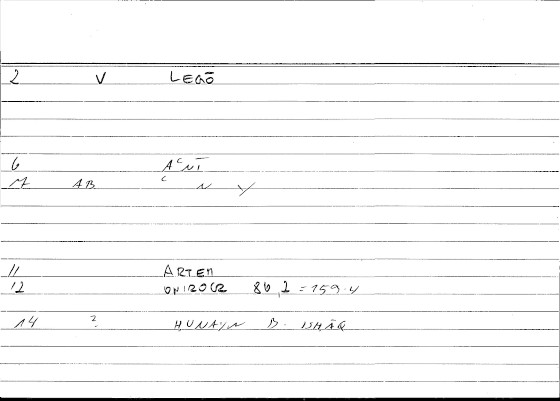 2 V LEGŌ
6
AB C N Y
11 ARTEM
12 ONIROCR 86,1 = 159.4
14 ? HUNAYN B. ISHĀQ